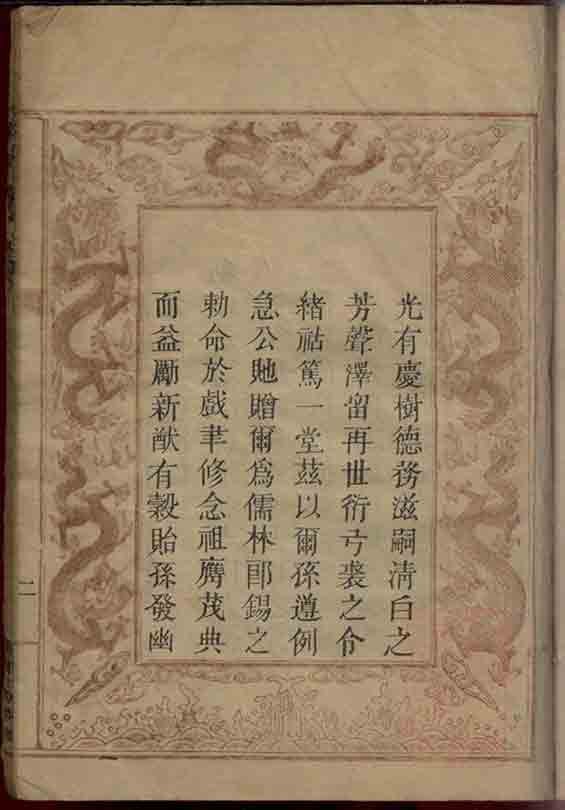 光有慶樹德務滋嗣清白之
芳聲澤留再世衍弓裘之令
緒祜篤一堂茲以爾孫遵例
急公貤贈爾為儒林郎錫之
勅命於戲聿修念祖膺茂典
而益勵新猷有穀貽孫發幽
二